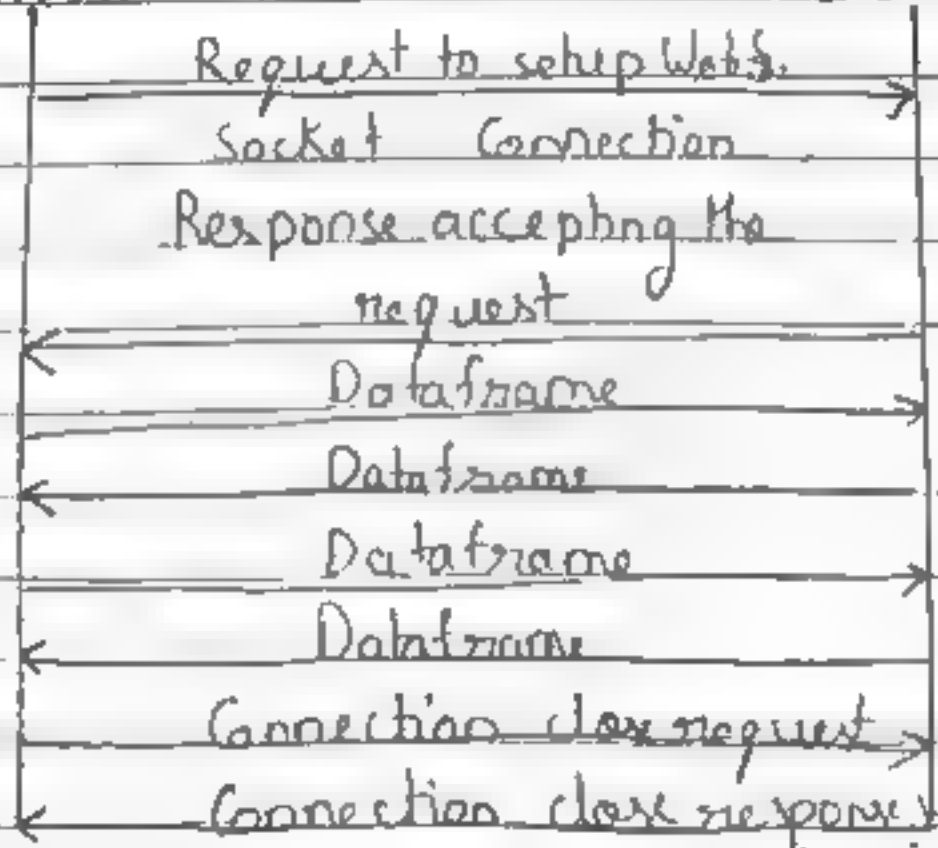 Request to setup Web S.
Socket Connection
Response accepting the
request
Dataframe
Dataframe
Dataframe
Dataframe
Connection close request
Connection close response